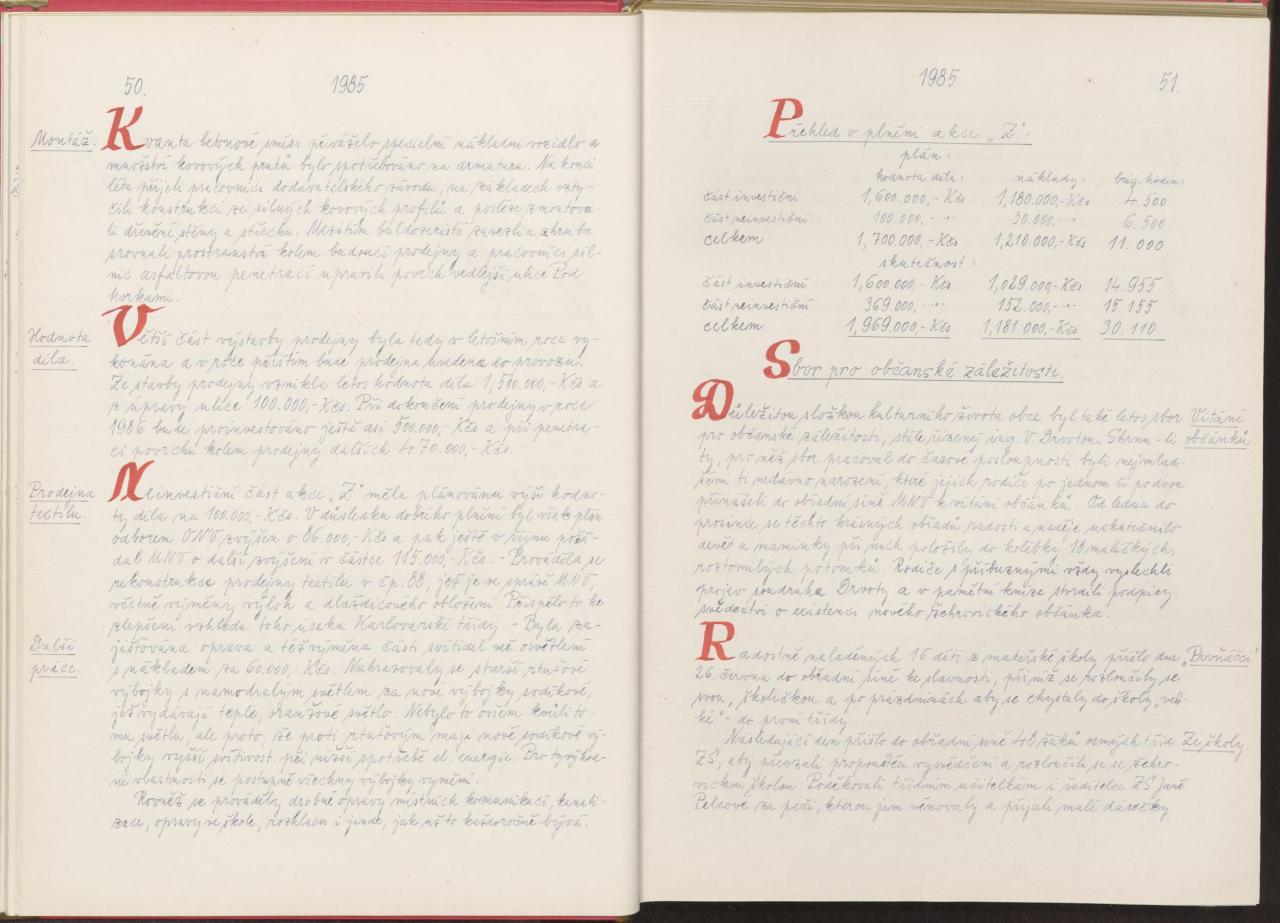 50.
1985
Montáž.
Kvanta betonové směsi přiváželo specielní nákladní vozidlo a
množství kovových prutů bylo spotřebováno na armaturu. Na konci
léta přijeli pracovníci dodavatelského závodu, na základech vzty-
čili konstrukci ze silných kovových profilů a posléze zmontova-
li dřevěné stěny a střechu. Mezitím buldozeristé zavezli a zhruba
srovnali prostranství kolem budoucí prodejny a pracovníci sil-
nic asfaltovou penetrací upravili povrch vedlejší ulice Pod
horkami.
Hodnota
díla.
Větší část výstavby prodejny byla tedy v letošním roce vy-
konána a v roce příštím bude prodejna uvedena do provozu.
Ze stavby prodejny vznikla letos hodnota díla 1,500.000,- Kčs a
z úpravy ulice 100.000,- Kčs. Při dokončení prodejny v roce
1986 bude proinvestováno ještě asi 500.000,- Kčs a při penetra-
ci povrchu kolem prodejny dalších 470.000,- Kčs.
Prodejna
textilu.
Neinvestiční část akce „Z" měla plánovanu výši hodno-
ty díla na 100.000,- Kčs. V důsledku dobrého plnění byl však plán
odborem ONV zvýšen o 86.000,- Kčs a pak ještě v říjnu požá-
dal MNV o další zvýšení v částce 115.000,- Kčs. - Prováděla se
rekonstrukce prodejny textilu v čp. 88, jež je ve správě MNV,
včetně výměny výloh a dlaždicového obložení. Přispělo to ke
zlepšení vzhledu toho úseku Karlovarské třídy. - Byla za-
Další
práce.
jišťována oprava a též výměna části svítidel veř. osvětlení
s nákladem za 60.000,- Kčs. Nahrazovaly se starší rtuťové
výbojky s namodralým světlem za nové výbojky sodíkové,
jež vydávají teplé, oranžové světlo. Nebylo to ovšem kvůli to-
mu světlu, ale proto, že proti rtuťovým mají nové sodíkové vý-
bojky vyšší svítivost při nižší spotřebě el. energie. Pro ty výhod-
né vlastnosti se postupně všechny výbojky vymění.
Rovněž se prováděly drobné opravy místních komunikací, kanali-
zace, opravy ve škole, rozhlasu i jinde, jak už to každoročně bývá.
1985
51.
Přehled o plnění akce „Z":
plán:
hodnota díla: náklady: brig. hodin:
část investiční 1,600.000,- Kčs 1,180.000,- Kčs 4.500
část neinvestiční 100.000,- -"- 30.000,- -"- 6.500
celkem 1,700.000,- Kčs 1,210.000,- Kčs 11.000
skutečnost:
část investiční 1,600.000,- Kčs 1,029.000,- Kčs 14.955
část neinvestiční 369.000,- -"- 152.000,- -"- 15.155
celkem 1,969.000,- Kčs 1,181.000,- Kčs 30.110
Sbor pro občanské záležitosti.
Důležitou složkou kulturního života obce byl také letos sbor
Vítání
občánků.
pro občanské záležitosti, stále řízený ing. V. Drvotou. Skrun-li
ty, pro něž sbor pracoval do časové posloupnosti byli nejmlad-
šími ti nedávno narození, které jejich rodiče po jednom či po dvou
přinášeli do obřadní síně MNV k vítání občánků. Od ledna do
prosince se těchto krásných obřadů radosti a naděje uskutečnilo
devět a maminky při nich položily do kolébky 18 maličkých,
roztomilých potomků. Rodiče s příbuznými vždy vyslechli
projev soudruha Drvoty a v pamětní knize stvrdili podpisy
svědectví o existenci nového žehrovického občánka.
Radostně naladěných 16 dětí z mateřské školy přišlo dne
„Prvňáčci"
26. června do obřadní síně ke slavnosti, při níž se rozloučily se
svou „školičkou a po prázdninách aby se chystaly do školy „vel-
ké" - do první třídy.
Následující den přišlo do obřadní síně 40 žáků osmých tříd
Ze školy.
ZŠ, aby převzali propouštěcí vysvědčení a rozloučili se se žehro-
vickou školou. Poděkovali třídním učitelkám i ředitelce ZŠ Jarě
Pelcové za péči, kterou jim věnovaly a přijali malé dárečky